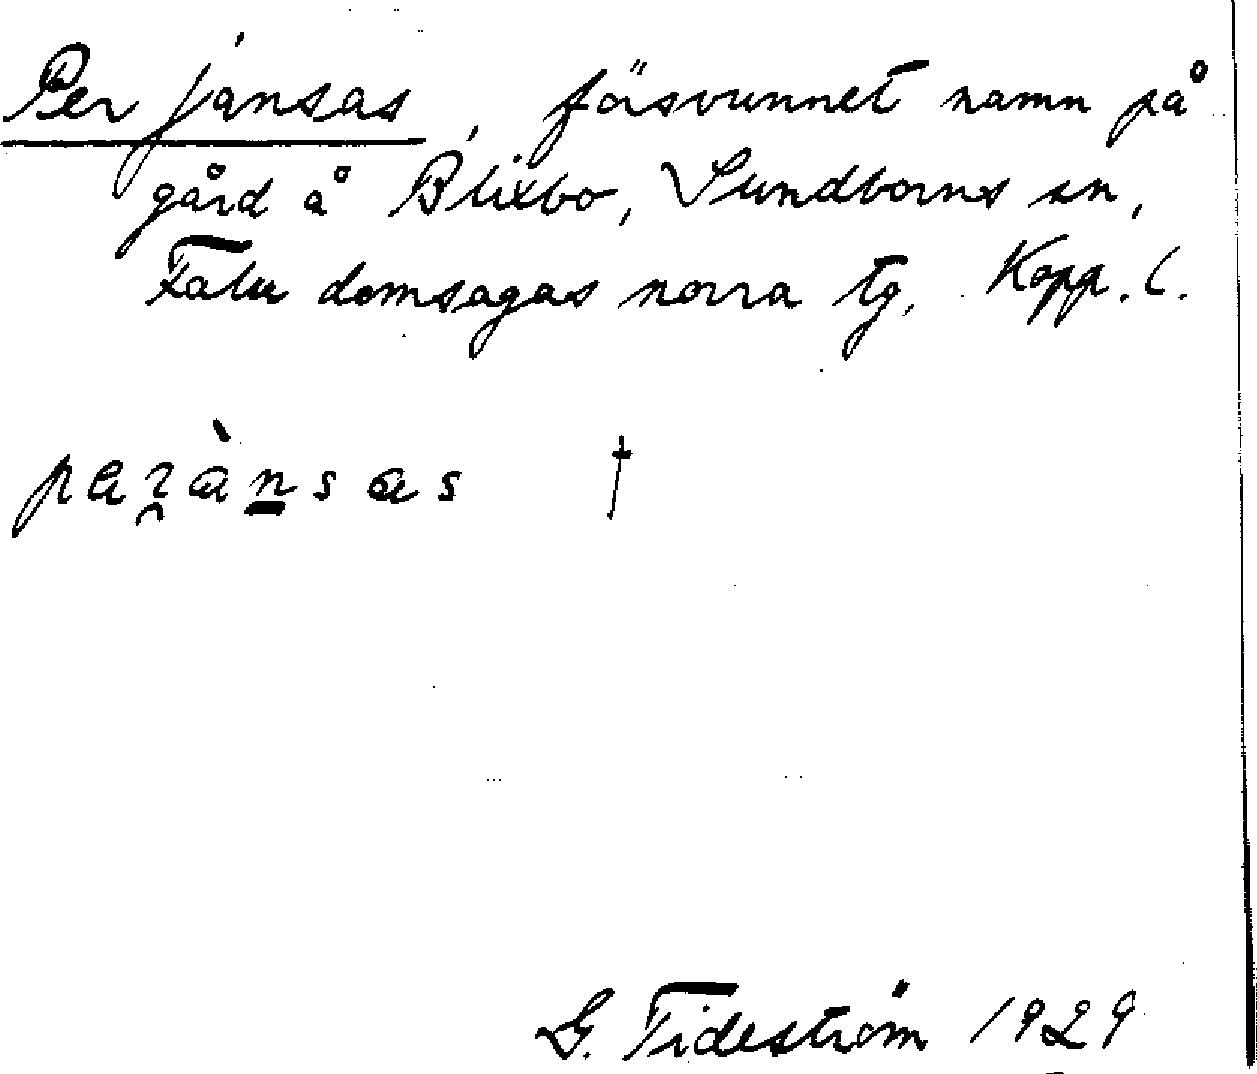 Per jansas, försvunnet namn på
gård å Blixbo, Sundborns sn,
Falu domsagas norra tg, Kopp. l.
perànsas †
G. Tideström 1929